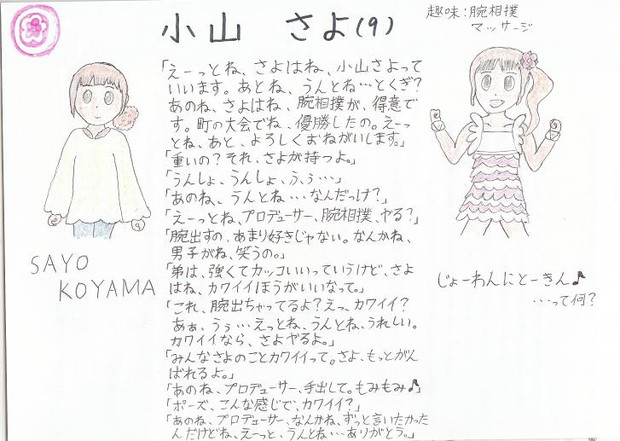 小山 さよ(9)
趣味:腕相撲
マッサージ
「えーっとね、さよはね、小山さよって
いいます。あとね、うんとね…とくぎ?
あのね、さよはね、腕相撲が、得意で
す。町の大会でね、優勝したの。えーっ
とね、あと、よろしくおねがいします。」
「重いの?それ、さよが持つよ。」
「うんしょ、うんしょ、ふぅ…」
「あのね、うんとね…なんだっけ?」
「えーっとね、プロデューサー、腕相撲、やる?」
「腕出すの、あまり好きじゃない。なんかね、
男子がね、笑うの。」
「弟は、強くてカッコいいっていうけど、さよ
はね、カワイイほうがいいなって。」
「これ、腕出ちゃってるよ?えっ、カワイイ?
あぁ、うぅ…えっとね、うんとね、うれしい。
カワイイなら、さよやるよ。」
「みんなさよのことカワイイって。さよ、もっとがん
ばれるよ。」
「あのね、プロデューサー、手出して。もみもみ♪」
「ポーズ、こんな感じで、カワイイ?」
「あのね、プロデューサー、なんかね、ずっと言いたかった
んだけどね、えーっと、うんとね…ありがとう。」
SAYO
KOYAMA
じょーわんにとーきん♪
…って何?